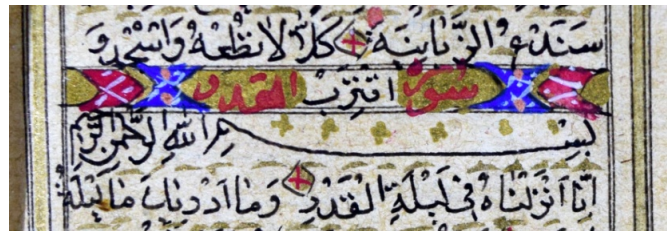 سَنَدْعُ الزَّبَانِيَةَ كَلَّا لَا تُطِعْهُ وَاسْجُدْ وَ
اقْتَرِبْ سورة القدر
بِسْمِ اللهِ الرَّحْمٰنِ الرَّحِيمِ
اِنَّا اَنْزَلْنَاهُ فِي لَيْلَةِ الْقَدْرِ وَمَا اَدْرٰيكَ مَا لَيْلَةُ